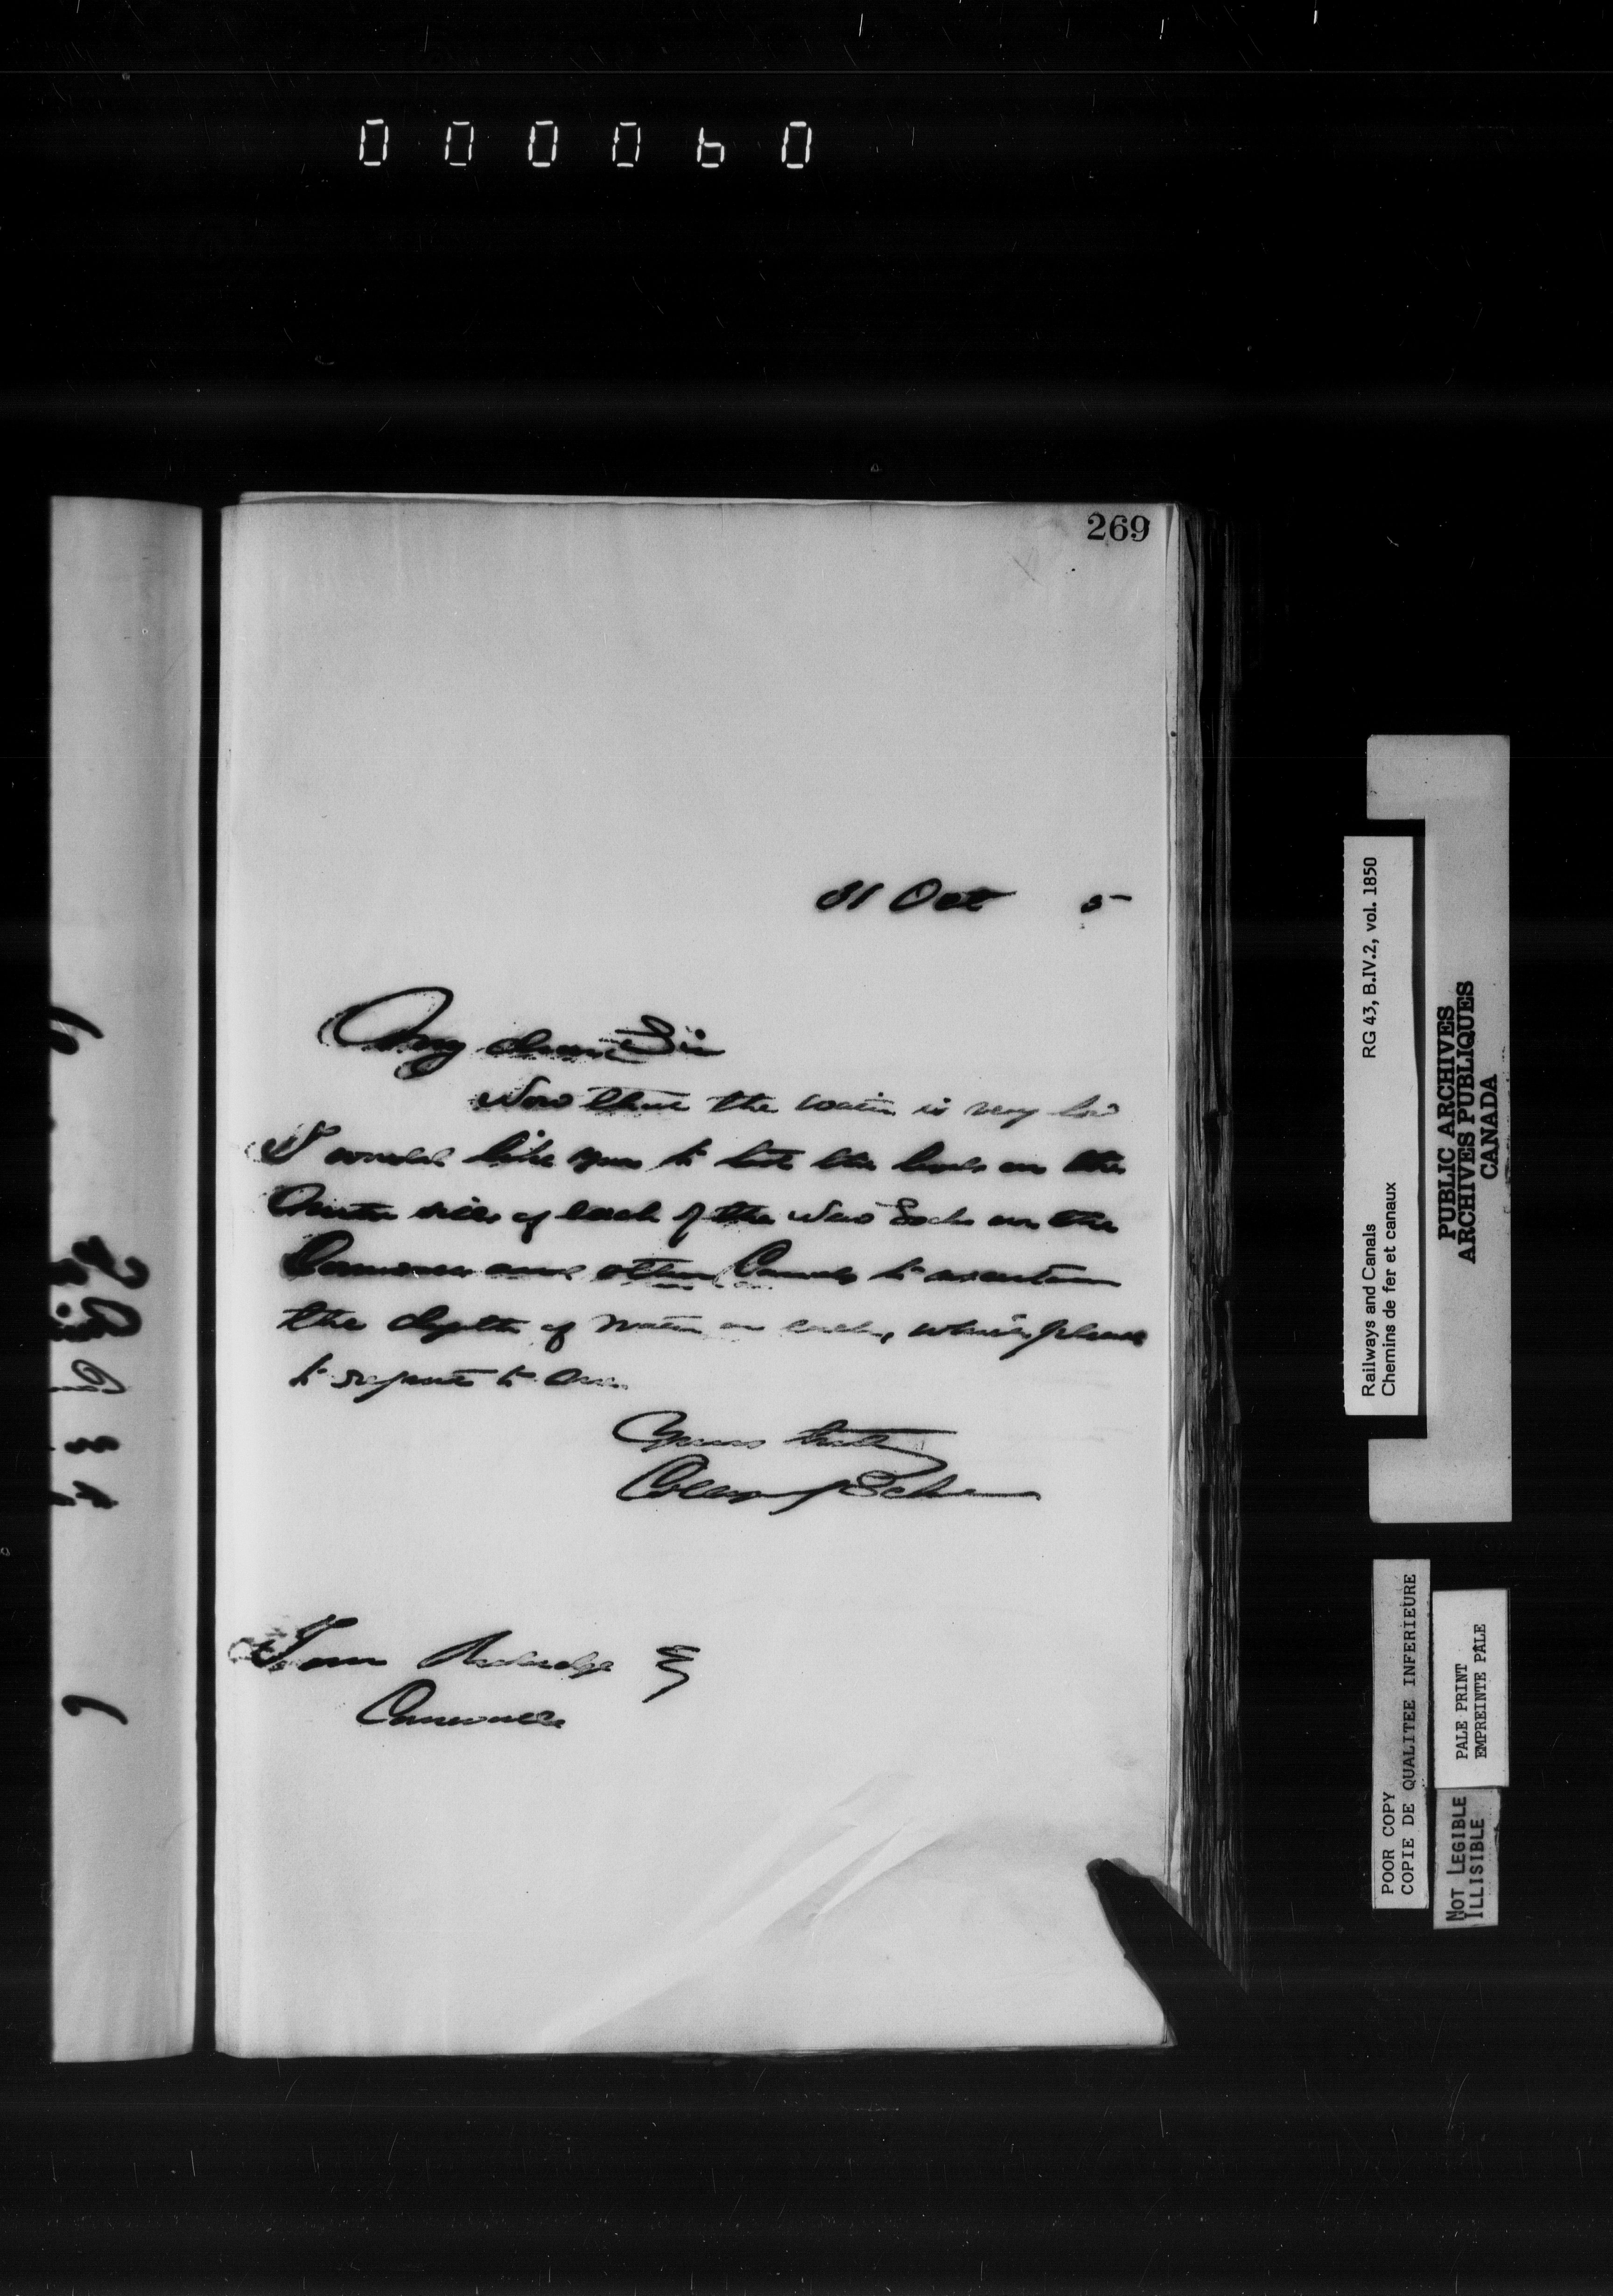 000060
269
31 Oct 5
My dear Sir
Now that the water is very low
I would like you to take the levels on the
mitre sills of each of the new Locks on the
Cornwall and other Canals to ascertain
the depth of water on each, which please
to report to me.
Yours truly
Collingwood Schreiber
Tom Rubidge E
Cornwall
Railways and Canals RG 43, B.IV.2, vol. 1850
Chemins de fer et canaux
PUBLIC ARCHIVES
ARCHIVES PUBLIQUES
CANADA
POOR COPY
COPIE DE QUALITEE INFERIEURE
PALE PRINT
EMPREINTE PALE
NOT LEGIBLE
ILLISIBLE